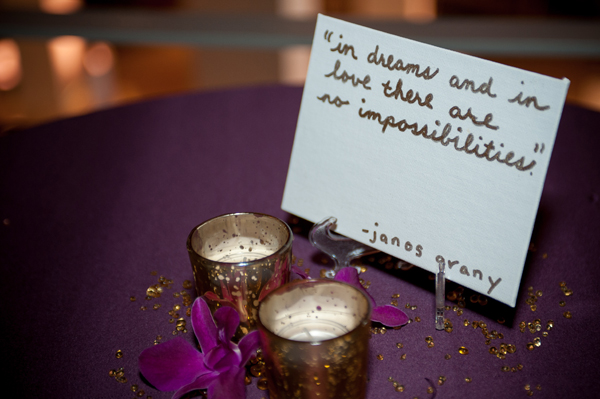 "in dreams and in
love there are
no impossibilities."
-janos grany